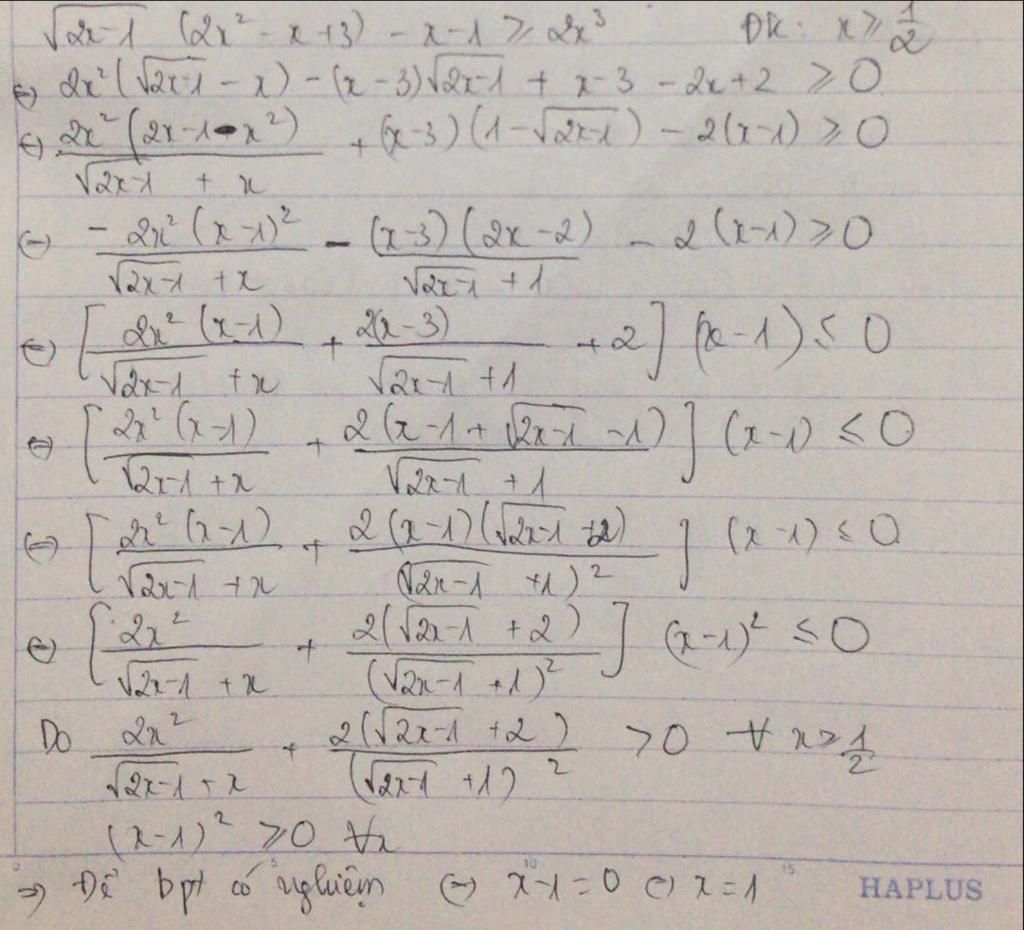 √(2x-1) (2x² - x + 3) - x - 1 ≥ 2x³ ĐK: x ≥ 1/2
⇔ 2x²(√(2x-1) - x) - (x-3)√(2x-1) + x - 3 - 2x + 2 ≥ 0
⇔ 2x²(2x-1-x²)/(√(2x-1) + x) + (x-3)(1-√(2x-1)) - 2(x-1) ≥ 0
⇔ -2x²(x-1)²/(√(2x-1) + x) - (x-3)(2x-2)/(√(2x-1) + 1) - 2(x-1) ≥ 0
⇔ [2x²(x-1)/(√(2x-1) + x) + 2(x-3)/(√(2x-1) + 1) + 2] (x-1) ≤ 0
⇔ [2x²(x-1)/(√(2x-1) + x) + 2(x-1+√(2x-1) -1)/(√(2x-1) + 1)] (x-1) ≤ 0
⇔ [2x²(x-1)/(√(2x-1) + x) + 2(x-1)(√(2x-1) + 2)/(√(2x-1) + 1)²] (x-1) ≤ 0
⇔ [2x²/(√(2x-1) + x) + 2(√(2x-1) + 2)/(√(2x-1) + 1)²] (x-1)² ≤ 0
Do 2x²/(√(2x-1) + x) + 2(√(2x-1) + 2)/(√(2x-1) + 1)² > 0 ∀ x ≥ 1/2
(x-1)² ≥ 0 ∀x
⇒ Để bpt có nghiệm ⇔ x-1 = 0 ⇔ x = 1
0 5 10 15
HAPLUS